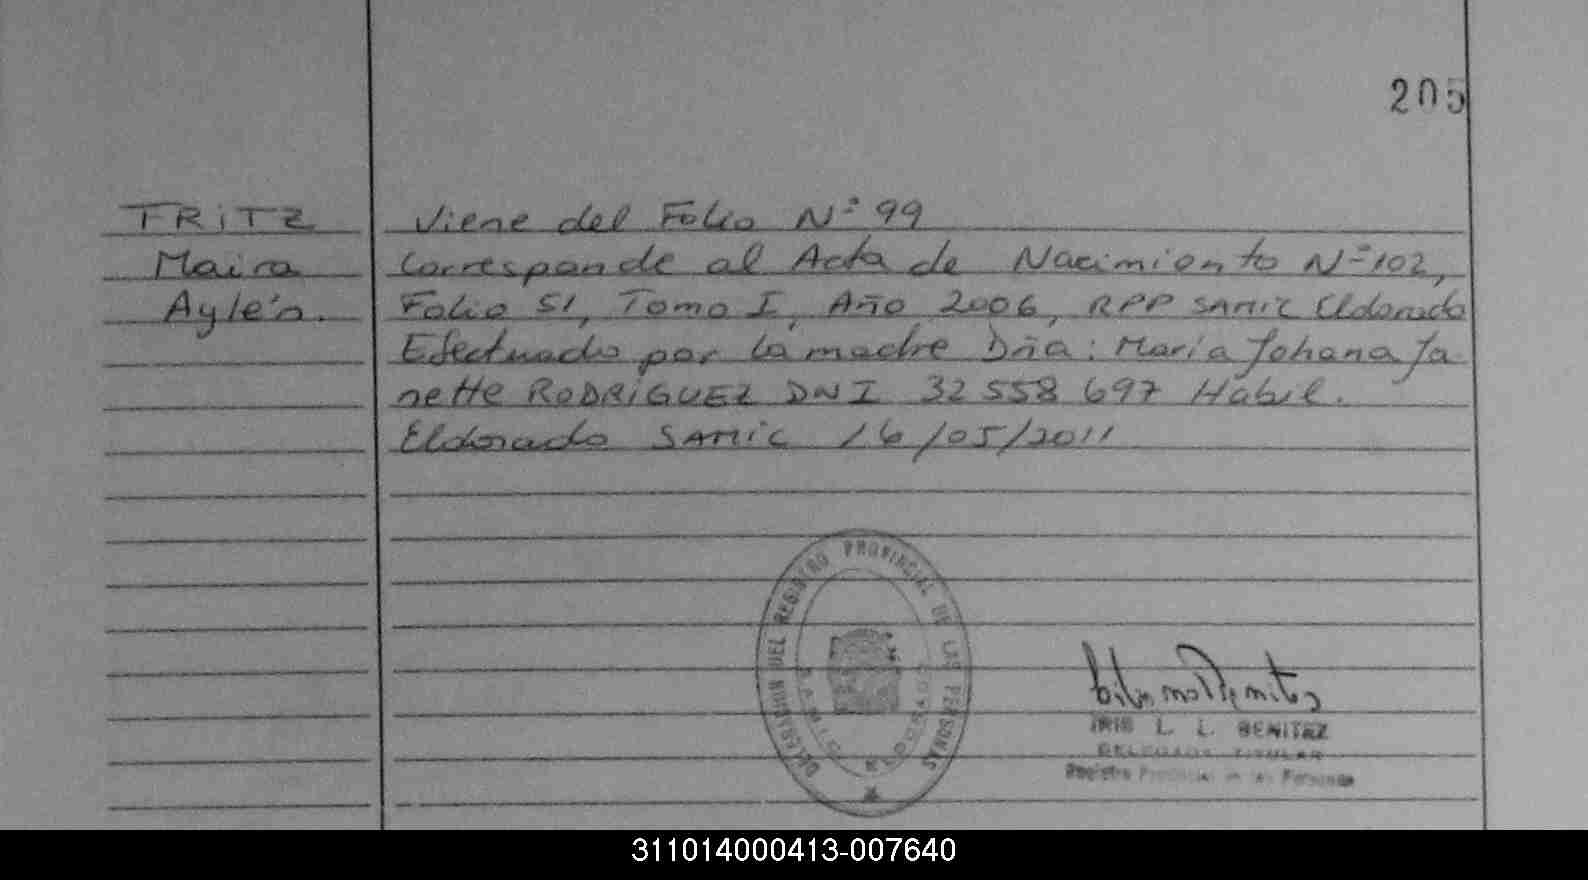 205
TRITZ
Maira
Aylén.
Viene del Folio Nº 99
Corresponde al Acta de Nacimiento Nº 102,
Folio 51, Tomo I, Año 2006, RPP SAMIC Eldorado
Efectuado por la madre Dña: María Johana Ja
nette RODRIGUEZ DNI 32 558 697 Habil.
Eldorado SAMIC 16/05/2011
DELEGACION DEL REGISTRO PROVINCIAL DE LAS PERSONAS
SAMIC ELDORADO
IRIS L. L. BENITEZ
DELEGADA TITULAR
Registro Provincial de las Personas
311014000413-007640